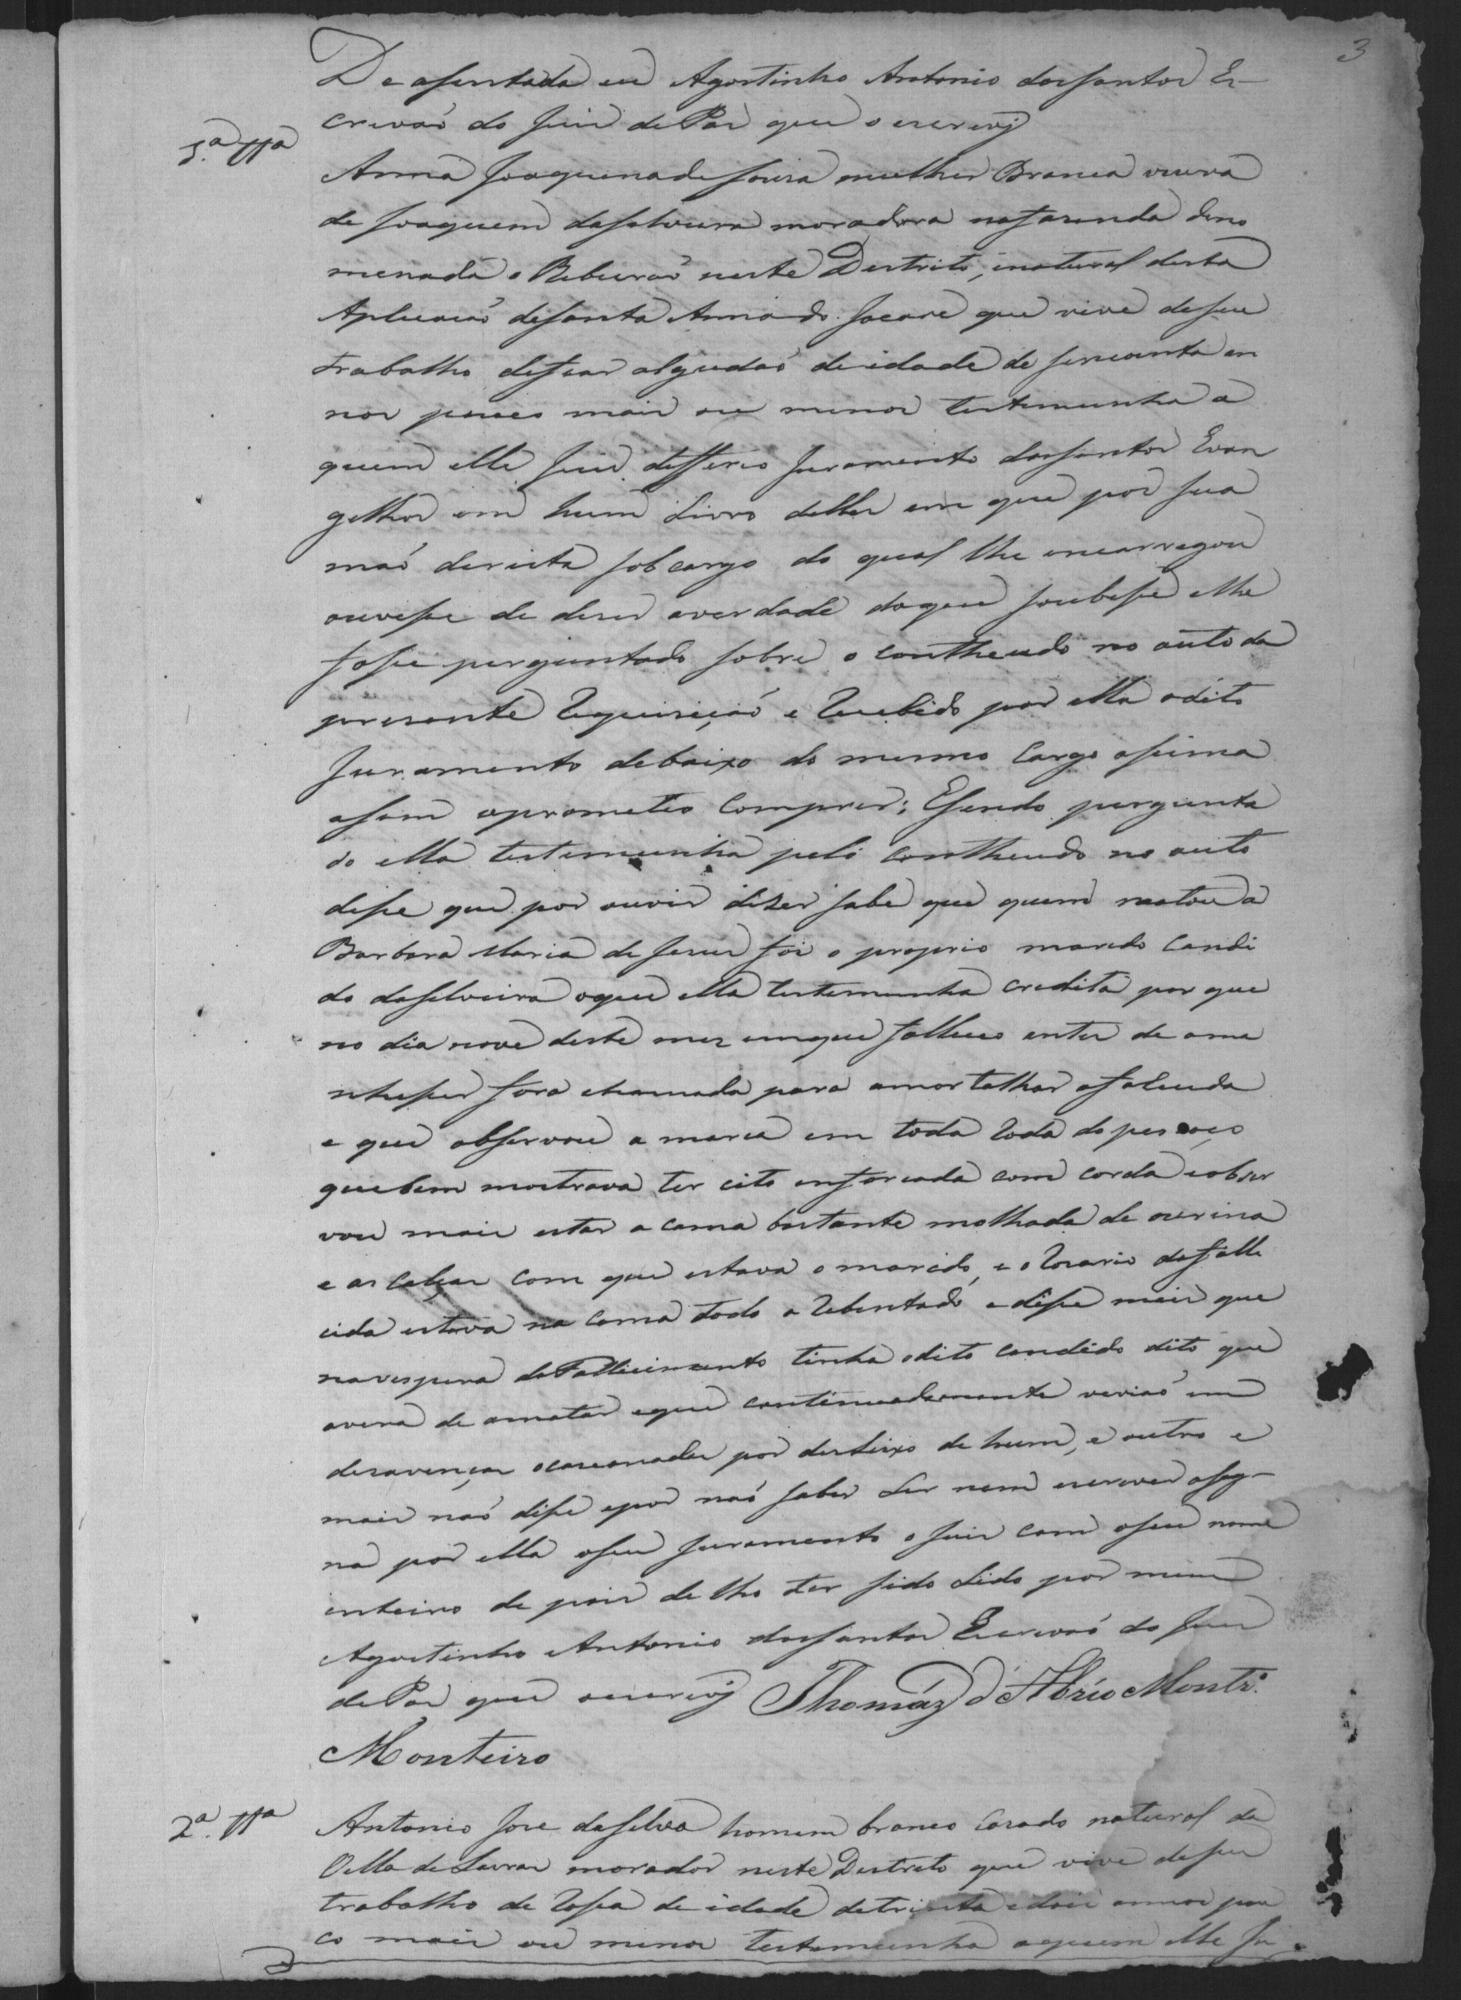 3
De asentada eu Agostinho Antonio dos santos Es-
crivaó do Juis de Pas que o escrevy
1.ª ttª
Anna Joaquina de souza mulher Branca viuva
de Joaquim da silveira moradora na fazenda dino
menada o Ribeiraó neste Destrito, inatural desta
Aplicacaó de santa Anna do Jacare que vive de seu
trabalho de fiar algudaó de idade de sincoenta an
nos pouco mais ou menos testemunha a
quem elle Juis differio Juramento dos santos Evan
gelhos em hum Livro delles em que por sua
maó dereita sob cargo do qual lhe encarregou
ouvesse de dizer averdade do que soubesse e lhe
fosse perguntado sobre o contheudo no auto da
presente Requiziçaó e Recebido por ella o dito
Juramento debaixo do mesmo Cargo assima
asim oprometeo Comprir; Esendo pergunta
do ella testemunha pelo contheudo no auto
disse que por ouvir dizer sabe que quem matou a
Barbara Maria de Jesus foi o proprio marido Candi
do da silveira oque ella testemunha credita por que
no dia nove deste mes emque falleceo antes de ama
nheser fora chamada para amortalhar afalecida
e que observou a marca em toda Roda do pescoço
quebem mostrava ter cito enforcada com corda eobser
vou mais estar a cama bastante molhada de ourina
e as calças com que estava o marido, e o Rozario dafalle
cida estava na cama todo a Rebentado e disse mais que
navespera do Fallecimento tinha odito candido dito que
avera de amatar eque continuadamente viviaó em
desavenças ocazionadas por desleixo de hum, e outro e
mais naó disse epor naó saber Ler nem escrever asig-
na por ella oseu Juramento o Juis com oseu nome
inteiro de pois de lho ter sido Lido por mim
Agostinho Antonio dos santos Escrivaó do Juis
de Pas que oescrevy Thomáz d'Abrêo Montr.º
Monteiro
2ª. ttª
Antonio Jose da silva homem branco Cazado natural da
Villa de Lavras morador neste Destrito que vive de seu
trabalho de Rossa de idade de trinta e dois annos pou
co mais ou menos testemunha aquem elle Ju